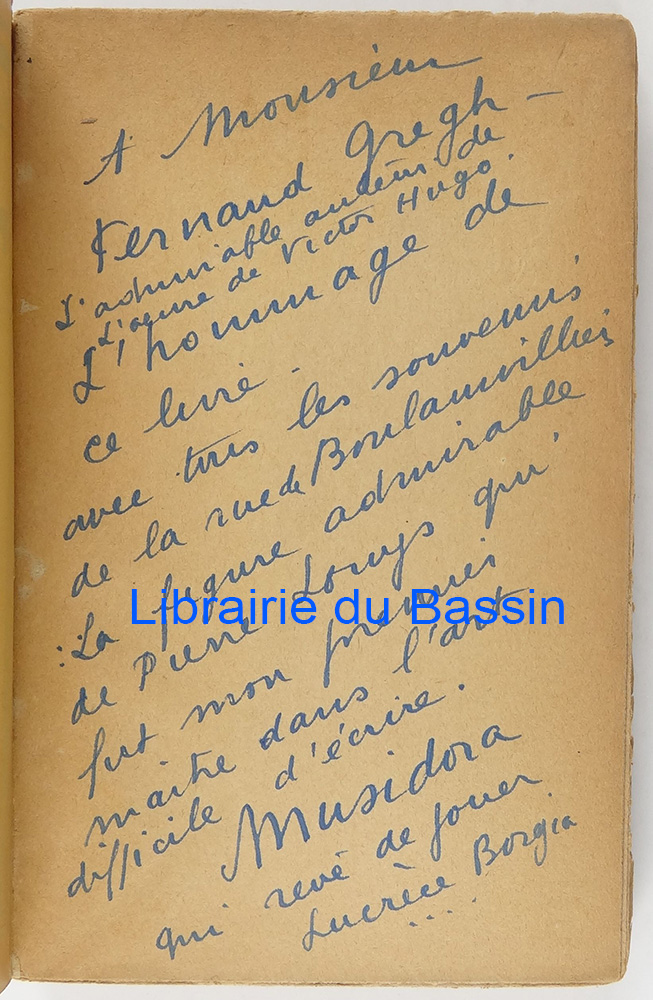 A Monsieur
Fernand Gregh –
L'admirable auteur de
L'œuvre de Victor Hugo.
L'hommage de
ce livre.
avec tous les souvenirs
de la rue de Boulainvilliers
: La figure admirable
de Pierre Louys qui
Librairie du Bassin
fut mon premier
maître dans l'art
difficile d'écrire.
Musidora
qui rêve de jouer
Lucrèce Borgia
....